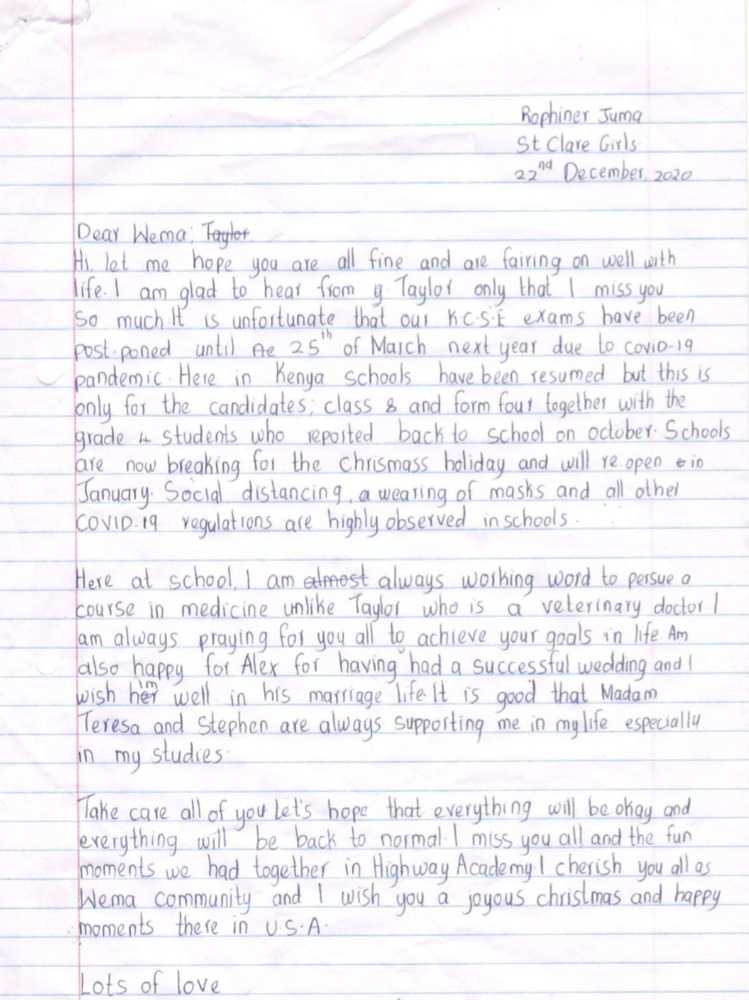 Rophiner Juma
St Clare Girls
22nd December, 2020
Dear Wema, Taylor
Hi, let me hope you are all fine and are fairing on well with
life. I am glad to hear from y Taylor only that I miss you
so much. It is unfortunate that our K.C.S.E exams have been
post-poned until 25th of March next year due to COVID-19
pandemic. Here in Kenya schools have been resumed but this is
only for the candidates; class 8 and form four together with the
grade 4 students who reported back to school on october. Schools
are now breaking for the chrismass holiday and will re.open in
January. Social distancing, a wearing of masks and all other
COVID-19 regulations are highly observed in schools.
Here at school, I am almost always working word to persue a
course in medicine unlike Taylor who is a veterinary doctor. I
am always praying for you all to achieve your goals in life. Am
also happy for Alex for having had a successful wedding and I
wish him well in his marriage life. It is good that Madam
Teresa and Stephen are always supporting me in my life especially
in my studies.
Take care all of you. Let's hope that everything will be okay and
everything will be back to normal. I miss you all and the fun
moments we had together in Highway Academy. I cherish you all as
Wema community and I wish you a joyous christmas and happy
moments there in U.S.A.
Lots of love